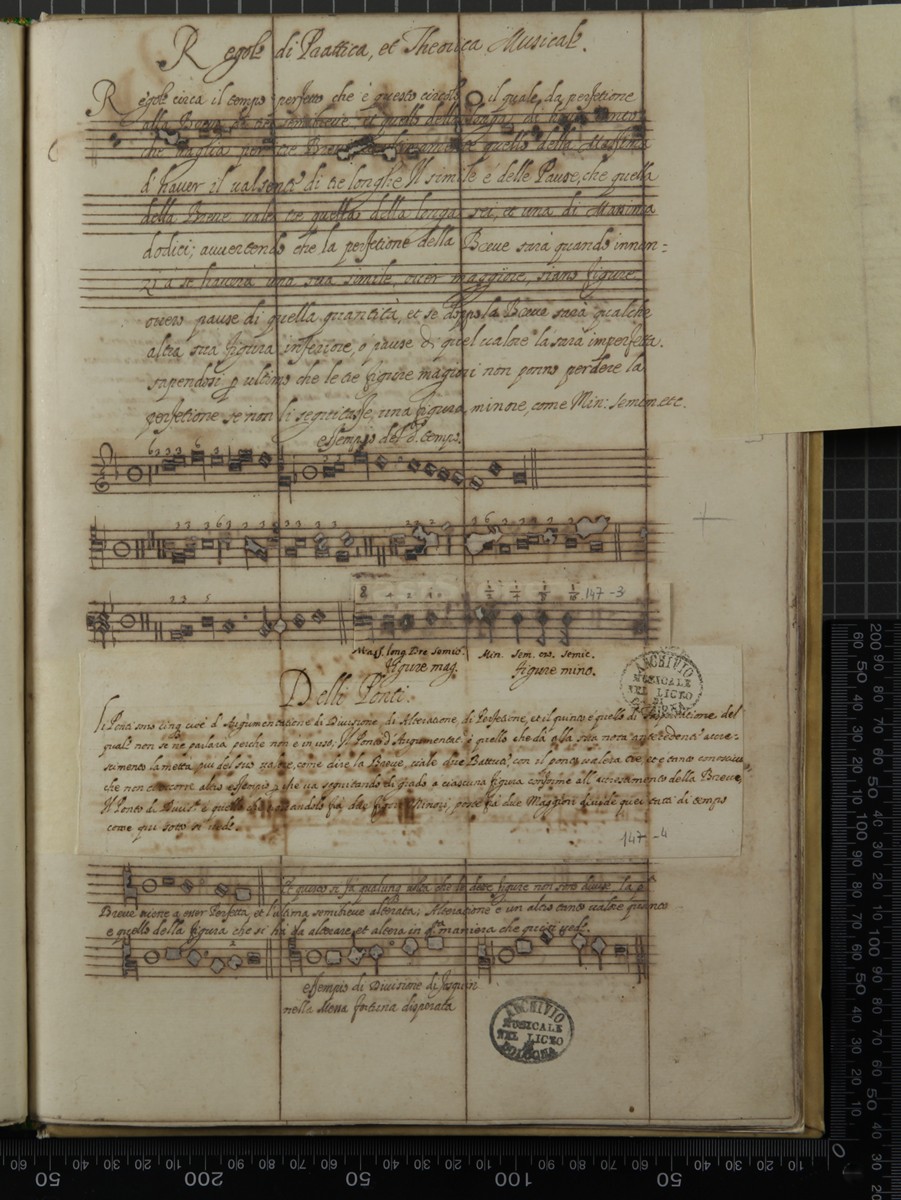 Regole di Prattica, et Theorica Musicale.
Regole circa il tempo perfetto che è questo circolo O il quale da perfetione
alla Breve di tre semibreve, et quello della
che vaglia per tre Breve et quello della Massima
d'haver il valsente di tre longhe Il simile è delle Pause, che quella
della Breve vale tre quella della longa sei, et una di Maxima
dodici; avvertendo che la perfetione della Breve sarà quando innan=
zi à se haverà una sua simile, over maggiore, siano figure
overo pause di quella quantità, et se doppo la Breve sarà qualche
altra sua figura inferiore, o pause di quel valore la sarà imperfetta.
sapendosi p ultimo che le tre figure magiori non ponno perdere la
perfetione se non li seguitasse, una figura minore, come Min: semem. etc.
essempio del d. tempo.
6 2 2 2 6 2 2
2 2 2 6 2 2 2 2 2 2 2
2 2 5
8 4 2 1
147-3
Mass. long. Bre. Semib.
Min. Sem. cro. semic.
figure mag.
figure mino.
ARCHIVIO
MUSICALE
NEL LICEO
BOLOGNA
Delli Ponti.
Li Ponti sono cinq cioè d'Argumentatione di Divisione, di Alteratione, di Perfetione, et il quinto è quello di del
qual non se ne parlarà perche non è in uso. Il Ponto d'Argumentat. è quello che dà alla sua nota antecedente accre-
scimento la metta più del suo valore, come dire la Breve, vale due Battute con il ponto valerà tre, et è tanto conosciuto
che non occorre altro essempio, che va seguitando di grado a ciascuna figura conforme all'accrescimento della Breve,
Il Ponto di Divis. è quello due figure Minori, poste frà due Maggiori divide quei tutti di tempo
come qui sotto si vede.
147-4
Et questo si fà qualunq volta che le dette figure non sono divise la p.
Breve viene a esser Perfetta, et l'ultima semibreve alterata; Alteratione è un altro tanto valore quanto
e quello della figura che si hà da alterare et altera in d. maniera che quivi vedi.
essempio di Divisione di Josquin
nella Messa fortuna disperata
ARCHIVIO
MUSICALE
NEL LICEO
BOLOGNA